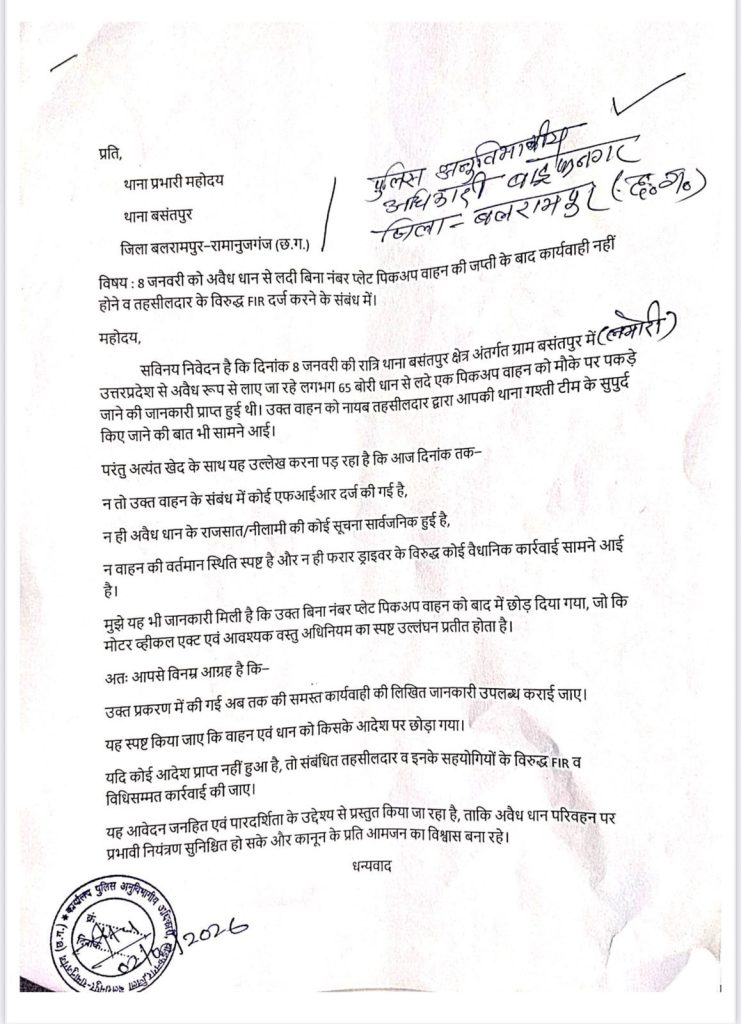 प्रति,
थाना प्रभारी महोदय
थाना बसंतपुर
जिला बलरामपुर-रामानुजगंज (छ.ग.)
पुलिस अनुविभागीय
अधिकारी वाड्रफनगर
जिला - बलरामपुर (छ.ग.)
विषय : 8 जनवरी को अवैध धान से लदी बिना नंबर प्लेट पिकअप वाहन की जप्ती के बाद कार्यवाही नहीं
होने व तहसीलदार के विरुद्ध FIR दर्ज करने के संबंध में।
महोदय,
सविनय निवेदन है कि दिनांक 8 जनवरी की रात्रि थाना बसंतपुर क्षेत्र अंतर्गत ग्राम बसंतपुर में
उत्तरप्रदेश से अवैध रूप से लाए जा रहे लगभग 65 बोरी धान से लदे एक पिकअप वाहन को मौके पर पकड़े
जाने की जानकारी प्राप्त हुई थी। उक्त वाहन को नायब तहसीलदार द्वारा आपकी थाना गश्ती टीम के सुपुर्द
किए जाने की बात भी सामने आई।
परंतु अत्यंत खेद के साथ यह उल्लेख करना पड़ रहा है कि आज दिनांक तक–
न तो उक्त वाहन के संबंध में कोई एफआईआर दर्ज की गई है,
न ही अवैध धान के राजसात/नीलामी की कोई सूचना सार्वजनिक हुई है,
न वाहन की वर्तमान स्थिति स्पष्ट है और न ही फरार ड्राइवर के विरुद्ध कोई वैधानिक कार्रवाई सामने आई
है।
मुझे यह भी जानकारी मिली है कि उक्त बिना नंबर प्लेट पिकअप वाहन को बाद में छोड़ दिया गया, जो कि
मोटर व्हीकल एक्ट एवं आवश्यक वस्तु अधिनियम का स्पष्ट उल्लंघन प्रतीत होता है।
अतः आपसे विनम्र आग्रह है कि–
उक्त प्रकरण में की गई अब तक की समस्त कार्यवाही की लिखित जानकारी उपलब्ध कराई जाए।
यह स्पष्ट किया जाए कि वाहन एवं धान को किसके आदेश पर छोड़ा गया।
यदि कोई आदेश प्राप्त नहीं हुआ है, तो संबंधित तहसीलदार व इनके सहयोगियों के विरुद्ध FIR व
विधिसम्मत कार्रवाई की जाए।
यह आवेदन जनहित एवं पारदर्शिता के उद्देश्य से प्रस्तुत किया जा रहा है, ताकि अवैध धान परिवहन पर
प्रभावी नियंत्रण सुनिश्चित हो सके और कानून के प्रति आमजन का विश्वास बना रहे।
धन्यवाद
कार्यालय पुलिस अनुविभागीय अधिकारी,
क्रं.
दिनांक
2026